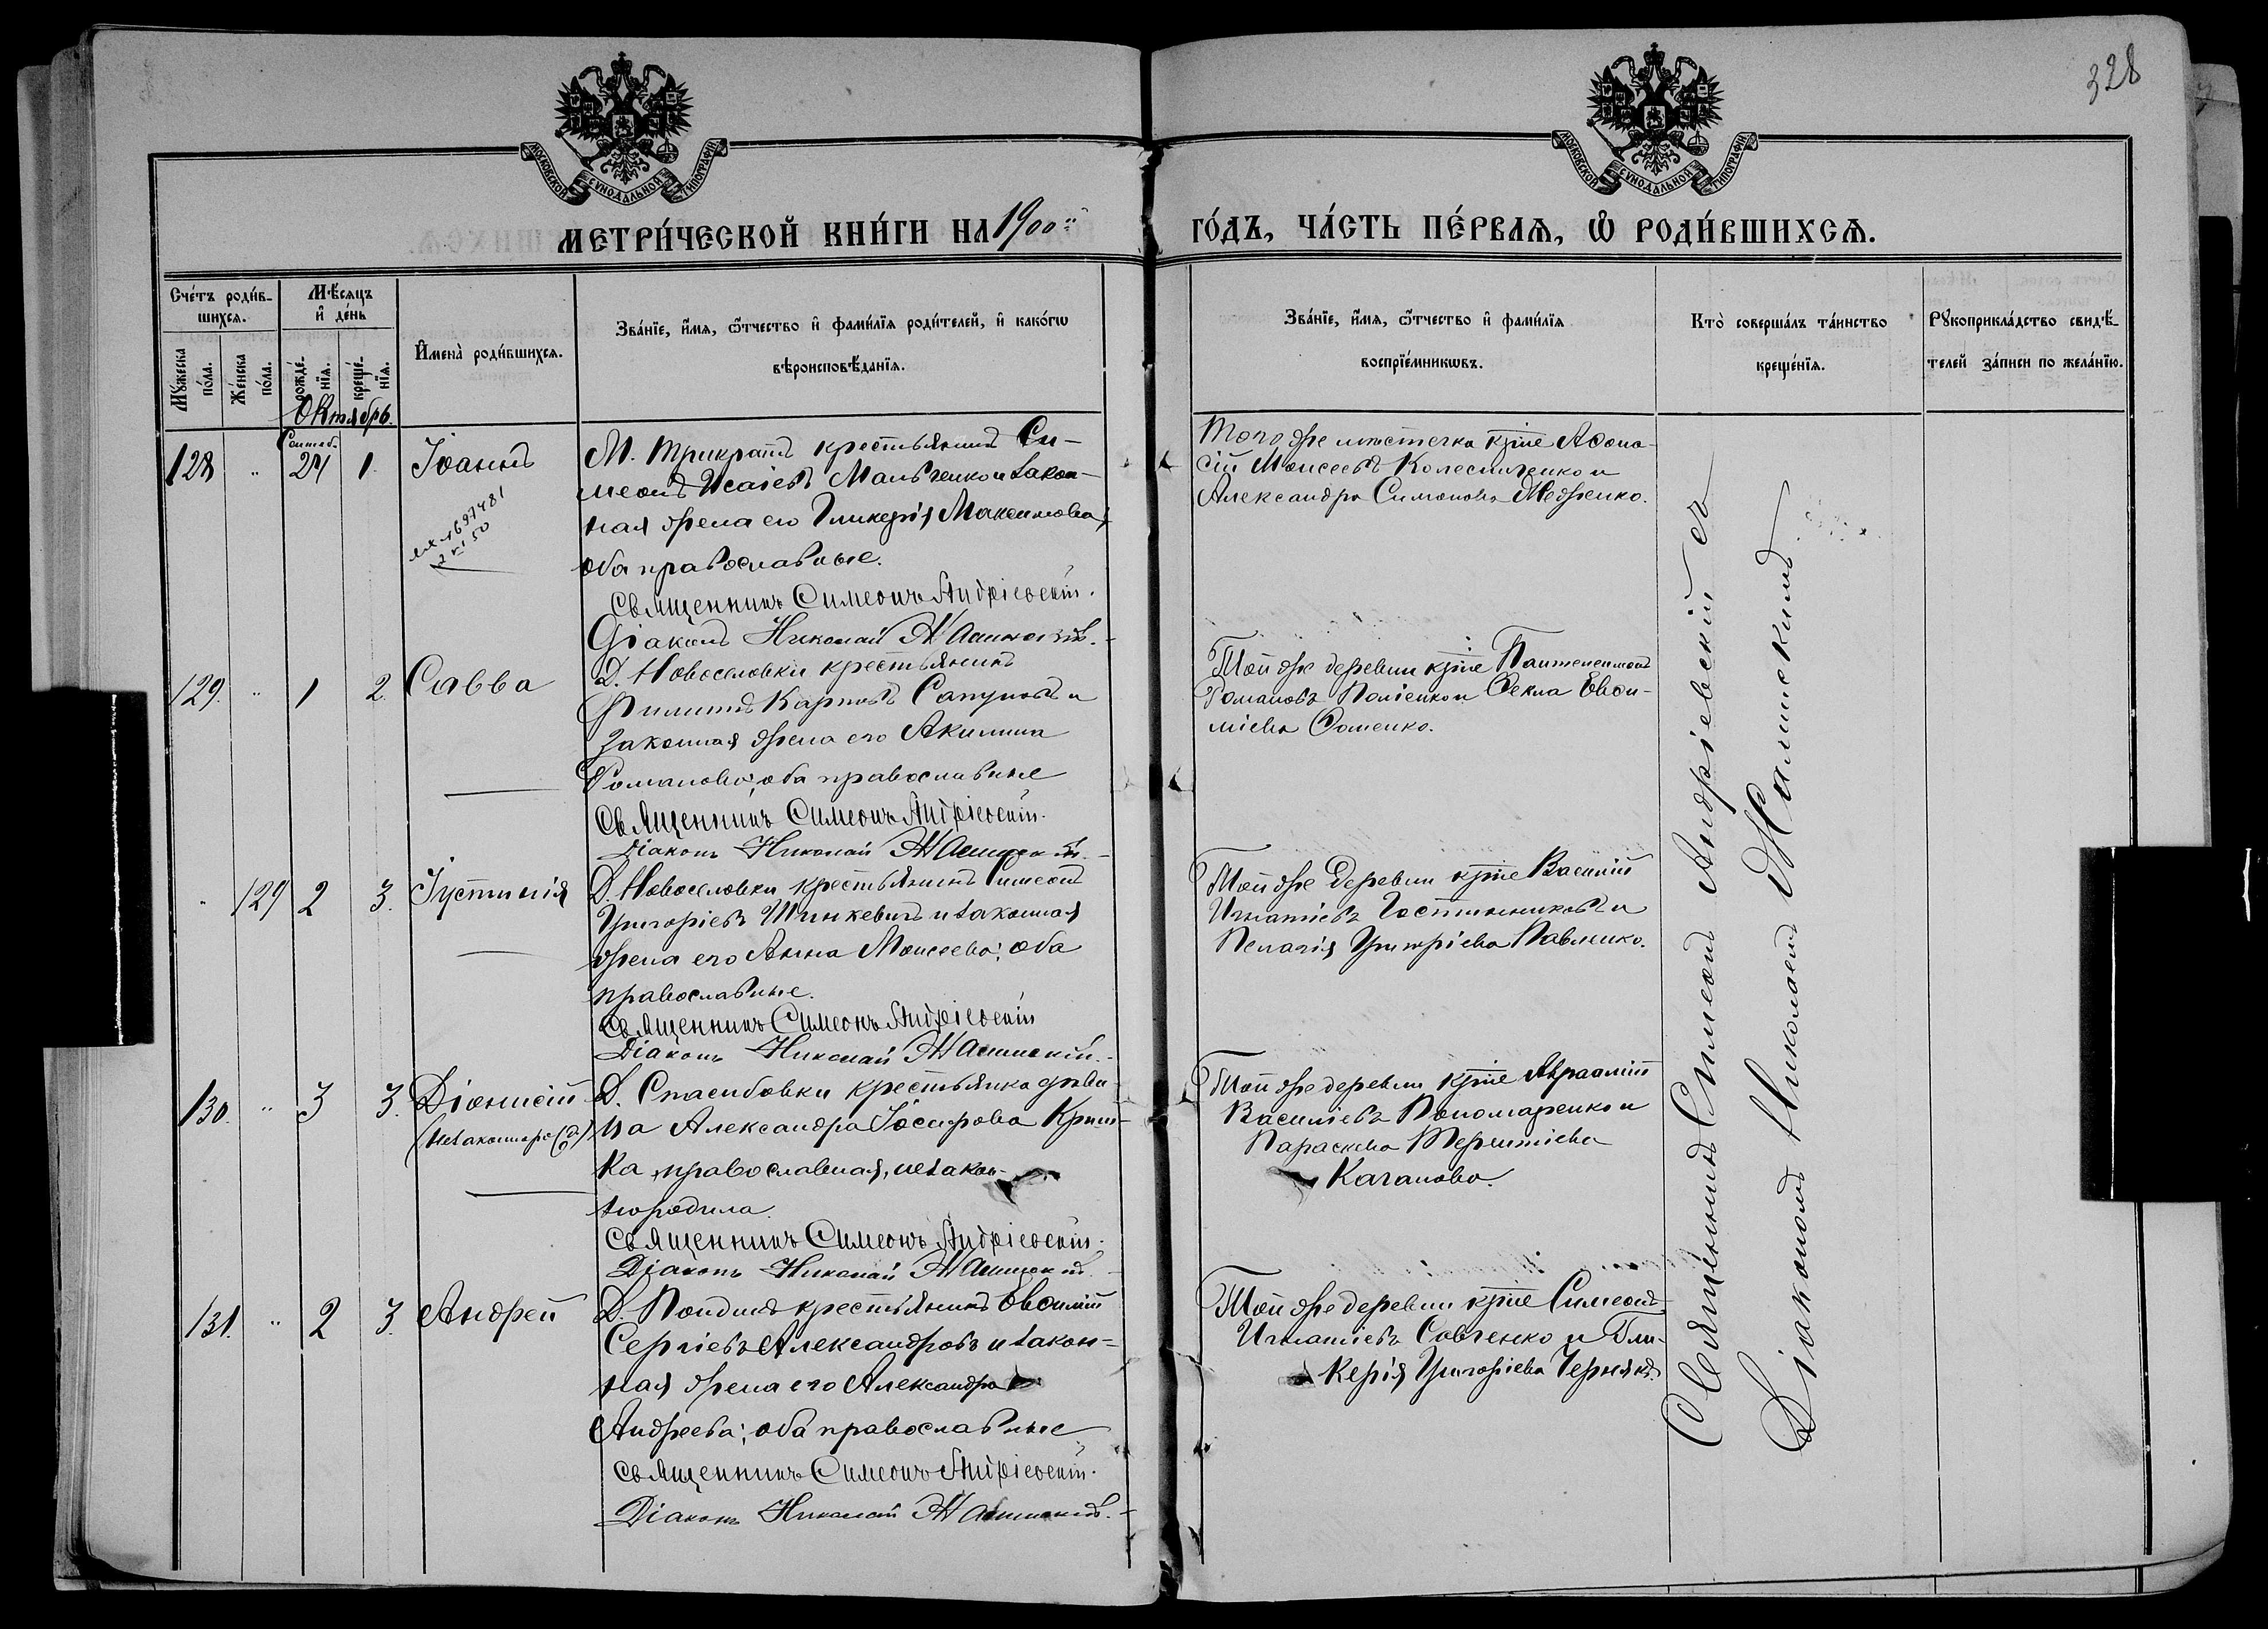 328
МОСКОВСКОЙ СѴНОДАЛЬНОЙ ТИПОГРАФІИ
МОСКОВСКОЙ СѴНОДАЛЬНОЙ ТИПОГРАФІИ
МЕТРИ́ЧЕСКОЙ КНИ́ГИ НА 1900й
ГО́ДЪ, ЧА́СТЬ ПЕ́РВАѦ, Ѡ҆ РОДИ́ВШИХСѦ.
Сче́тъ роди́в-
шихсѧ.
Мꙋ́жеска по́ла.
Же́нска по́ла.
Мѣ́сѧцъ
и҆ де́нь
рожде́-нїѧ.
креще́-нїѧ.
И҆мена̀ роди́вшихсѧ.
Зва́нїе, и҆́мѧ, ѻ҆́тчество и҆ фами́лїѧ роди́телей, и҆ како́гѡ
вѣроисповѣ́данїѧ.
Зва́нїе, и҆́мѧ, ѻ҆́тчество и҆ фами́лїѧ
воспрїе́мникѡвъ.
Кто̀ соверша́лъ та́инство
креще́нїѧ.
Рꙋкоприкла́дство свидѣ́-
телей за́писи по жела́нїю.
Октябрь.
Сентяб.
128 " 24 1 Іоаннъ
М. Трикратъ крестьянинъ Си-
меонъ Исаіевъ Мальченко и закон-
ная жена его Гликерія Максимова;
оба православные.
Священникъ Симеонъ Андріевскій.
Діаконъ Николай
Того же местечка кр-не Афона-
сій Моисеевъ Колесниченко и
Александра Симонова
129. " 1 2. Савва
Д. Новоселовки крестьянинъ
Филиппъ Карповъ Сапуновъ и
законная жена его Акилина
Романова; оба православные
Священникъ Симеонъ Андріевскій.
Діаконъ Николай
Той же деревни кр-не Пантелеимонъ
Романовъ и Фекла Евфи-
міева Фоменко.
" 129 2 3. Іустинія
Д. Новоселовки крестьянинъ Симеонъ
Григоріевъ Шинкевичъ и законная
жена его Анна Моисеева; оба
православные.
Священникъ Симеонъ Андріевскій
Діаконъ Николай
Той же деревни кр-не Василій
Игнатіевъ Гостинниковъ и
Пелагія Григоріева Павленко.
130. " 3 3. Діонисій
(незаконнорож)
Д. Спасибовки крестьянка деви-
ца Александра Іосифова
православная, незакон-
но родила.
Священникъ Симеонъ Андріевскій.
Діаконъ Николай
Той же деревни кр-не Авраамій
Васильевъ Пономаренко и
Параскева Терентіева
Каганова.
131. " 2 3. Андрей
Д. крестьянинъ Евфимій
Сергіевъ Александровъ и закон-
ная жена его Александра
Андреева; оба православные
Священникъ Симеонъ Андріевскій.
Діаконъ Николай
Той же деревни кр-не Симеонъ
Игнатіевъ Савченко и Гли-
керія Григоріева
Священникъ Симеонъ Андріевскій съ
Діакономъ Николаемъ